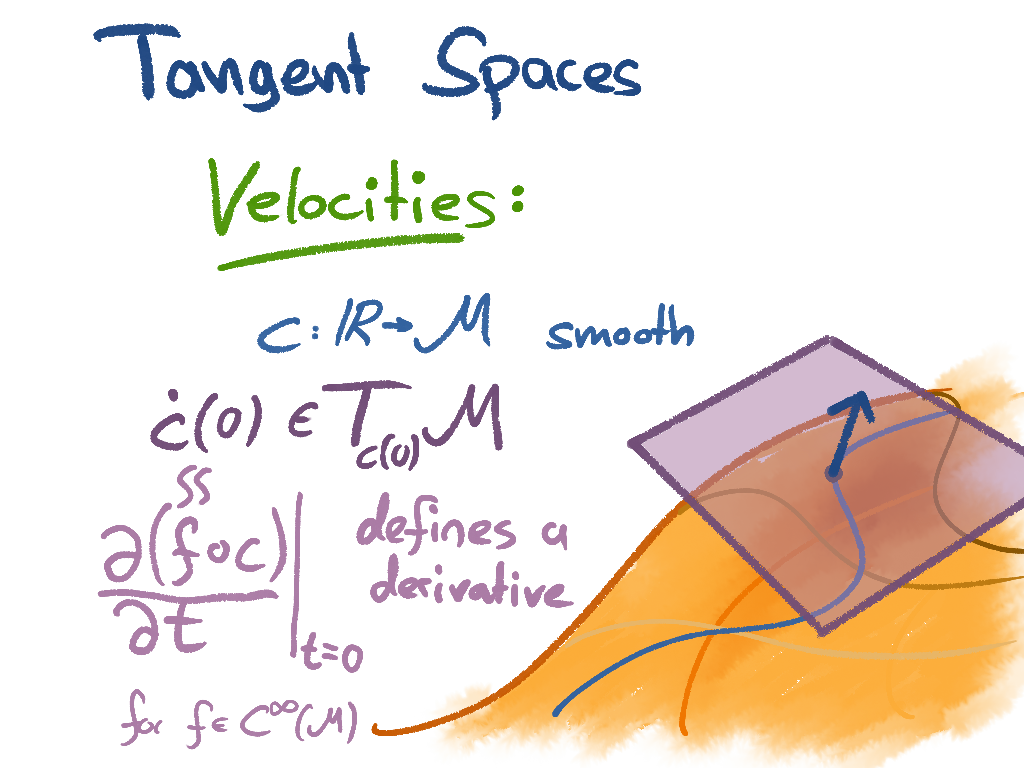 Tangent Spaces
Velocities:
c : ℝ → ℳ smooth
ċ(0) ∈ T_{c(0)}ℳ
≈
∂(f∘c)/∂t |_{t=0} defines a derivative
for f ∈ C^∞(ℳ)